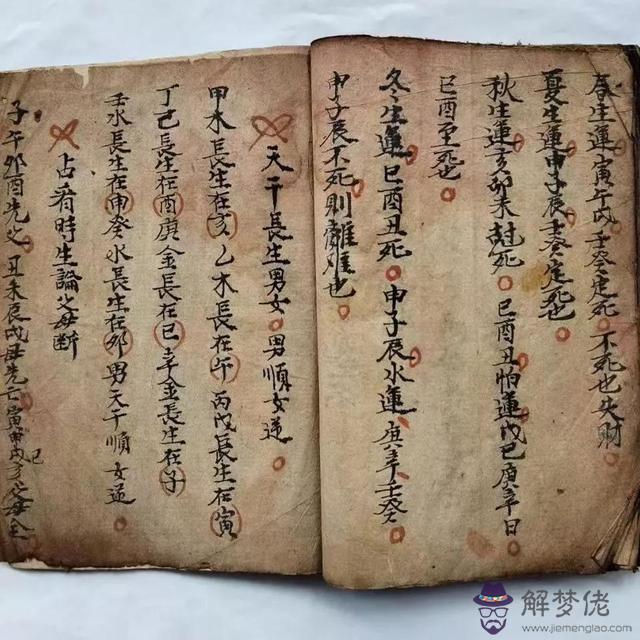 春生運寅午戌壬癸定死不死也失財
夏生運申子辰壬癸定死也
秋生運亥卯未尅死巳酉丑怕運戊己庚辛日
巳酉至死也
冬生運巳酉丑死申子辰水運庚辛壬癸
申子辰不死則離难也
天干長生男女男順女逆
甲木長生在亥乙木長生在午丙戊長生在寅
丁己長生在酉庚金長生在巳辛金長生在子
壬水長生在申癸水長生在卯男天干順女逆
占看時生論父母断
子午卯酉先父丑未辰戌母先亡寅申巳亥父母全
解梦佬
www.jiemenglao.com